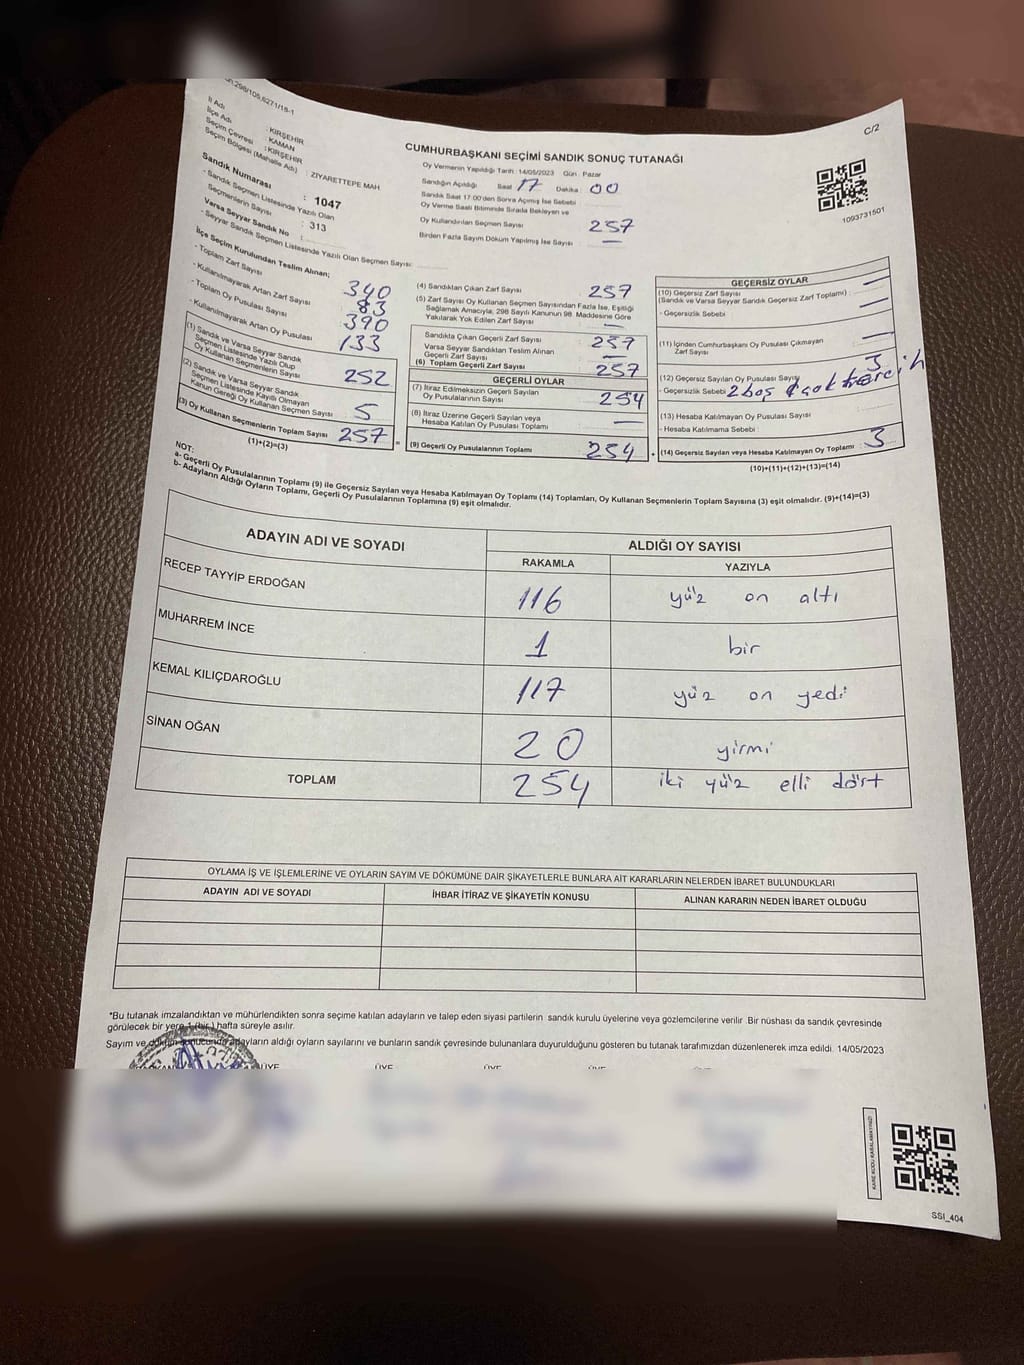 C/2
İl Adı : KIRŞEHİR
İlçe Adı : KAMAN
Seçim Çevresi : KIRŞEHİR
Seçim Bölgesi (Mahalle Adı) : ZİYARETTEPE MAH
Sandık Numarası : 1047
- Sandık Seçmen Listesinde Yazılı Olan Seçmenlerin Sayısı : 313
Varsa Seyyar Sandık No :
- Seyyar Sandık Seçmen Listesinde Yazılı Olan Seçmen Sayısı :
CUMHURBAŞKANI SEÇİMİ SANDIK SONUÇ TUTANAĞI
Oy Vermenin Yapıldığı Tarih : 14/05/2023 Gün : Pazar
Sandığın Açıldığı Saat 17 Dakika : 00
Sandık Saat 17:00'den Sonra Açılmış İse Sebebi
Oy Verme Saati Bitiminde Sırada Bekleyen ve
Oy Kullandırılan Seçmen Sayısı 257
Birden Fazla Sayım Döküm Yapılmış İse Sayısı —
1093731501
İlçe Seçim Kurulundan Teslim Alınan;
- Toplam Zarf Sayısı 340
- Kullanılmayarak Artan Zarf Sayısı 83
- Toplam Oy Pusulası Sayısı 390
- Kullanılmayarak Artan Oy Pusulası 133
(1) Sandık ve Varsa Seyyar Sandık
Seçmen Listesinde Yazılı Olup
Oy Kullanan Seçmenlerin Sayısı 252
(2) Sandık ve Varsa Seyyar Sandık
Seçmen Listesinde Kayıtlı Olmayan
Kanun Gereği Oy Kullanan Seçmen Sayısı 5
(3) Oy Kullanan Seçmenlerin Toplam Sayısı 257
(1)+(2)=(3)
(4) Sandıktan Çıkan Zarf Sayısı : 257
(5) Zarf Sayısı Oy Kullanan Seçmen Sayısından Fazla İse, Eşitliği
Sağlamak Amacıyla, 298 Sayılı Kanunun 98. Maddesine Göre
Yakılarak Yok Edilen Zarf Sayısı : —
Sandıkta Çıkan Geçerli Zarf Sayısı : 257
Varsa Seyyar Sandıktan Teslim Alınan
Geçerli Zarf Sayısı —
(6) Toplam Geçerli Zarf Sayısı : 257
GEÇERLİ OYLAR
(7) İtiraz Edilmeksizin Geçerli Sayılan
Oy Pusulalarının Sayısı 254
(8) İtiraz Üzerine Geçerli Sayılan veya
Hesaba Katılan Oy Pusulası Toplamı : —
(9) Geçerli Oy Pusulalarının Toplamı : 254
GEÇERSİZ OYLAR
(10) Geçersiz Zarf Sayısı
(Sandık ve Varsa Seyyar Sandık Geçersiz Zarf Toplamı) : —
- Geçersizlik Sebebi —
(11) İçinden Cumhurbaşkanı Oy Pusulası Çıkmayan
Zarf Sayısı —
(12) Geçersiz Sayılan Oy Pusulası Sayısı 3
- Geçersizlik Sebebi 2 boş çok tercih
(13) Hesaba Katılmayan Oy Pusulası Sayısı :
- Hesaba Katılmama Sebebi :
(14) Geçersiz Sayılan veya Hesaba Katılmayan Oy Toplamı : 3
(10)+(11)+(12)+(13)=(14)
NOT:
a- Geçerli Oy Pusulalarının Toplamı (9) ile Geçersiz Sayılan veya Hesaba Katılmayan Oy Toplamı (14) Toplamları, Oy Kullanan Seçmenlerin Toplam Sayısına (3) eşit olmalıdır. (9)+(14)=(3)
b- Adayların Aldığı Oyların Toplamı, Geçerli Oy Pusulalarının Toplamına (9) eşit olmalıdır.
ADAYIN ADI VE SOYADI ALDIĞI OY SAYISI
RAKAMLA YAZIYLA
RECEP TAYYİP ERDOĞAN 116 yüz on altı
MUHARREM İNCE 1 bir
KEMAL KILIÇDAROĞLU 117 yüz on yedi
SİNAN OĞAN 20 yirmi
TOPLAM 254 iki yüz elli dört
OYLAMA İŞ VE İŞLEMLERİNE VE OYLARIN SAYIM VE DÖKÜMÜNE DAİR ŞİKAYETLERLE BUNLARA AİT KARARLARIN NELERDEN İBARET BULUNDUKLARI
ADAYIN ADI VE SOYADI İHBAR İTİRAZ VE ŞİKAYETİN KONUSU ALINAN KARARIN NEDEN İBARET OLDUĞU
*Bu tutanak imzalandıktan ve mühürlendikten sonra seçime katılan adayların ve talep eden siyasi partilerin sandık kurulu üyelerine veya gözlemcilerine verilir. Bir nüshası da sandık çevresinde
görülecek bir yere 1 (bir) hafta süreyle asılır.
Sayım ve döküm sonucunda adayların aldığı oyların sayılarını ve bunların sandık çevresinde bulunanlara duyurulduğunu gösteren bu tutanak tarafımızdan düzenlenerek imza edildi. 14/05/2023
ÜYE ÜYE ÜYE ÜYE ÜYE
SSI_404